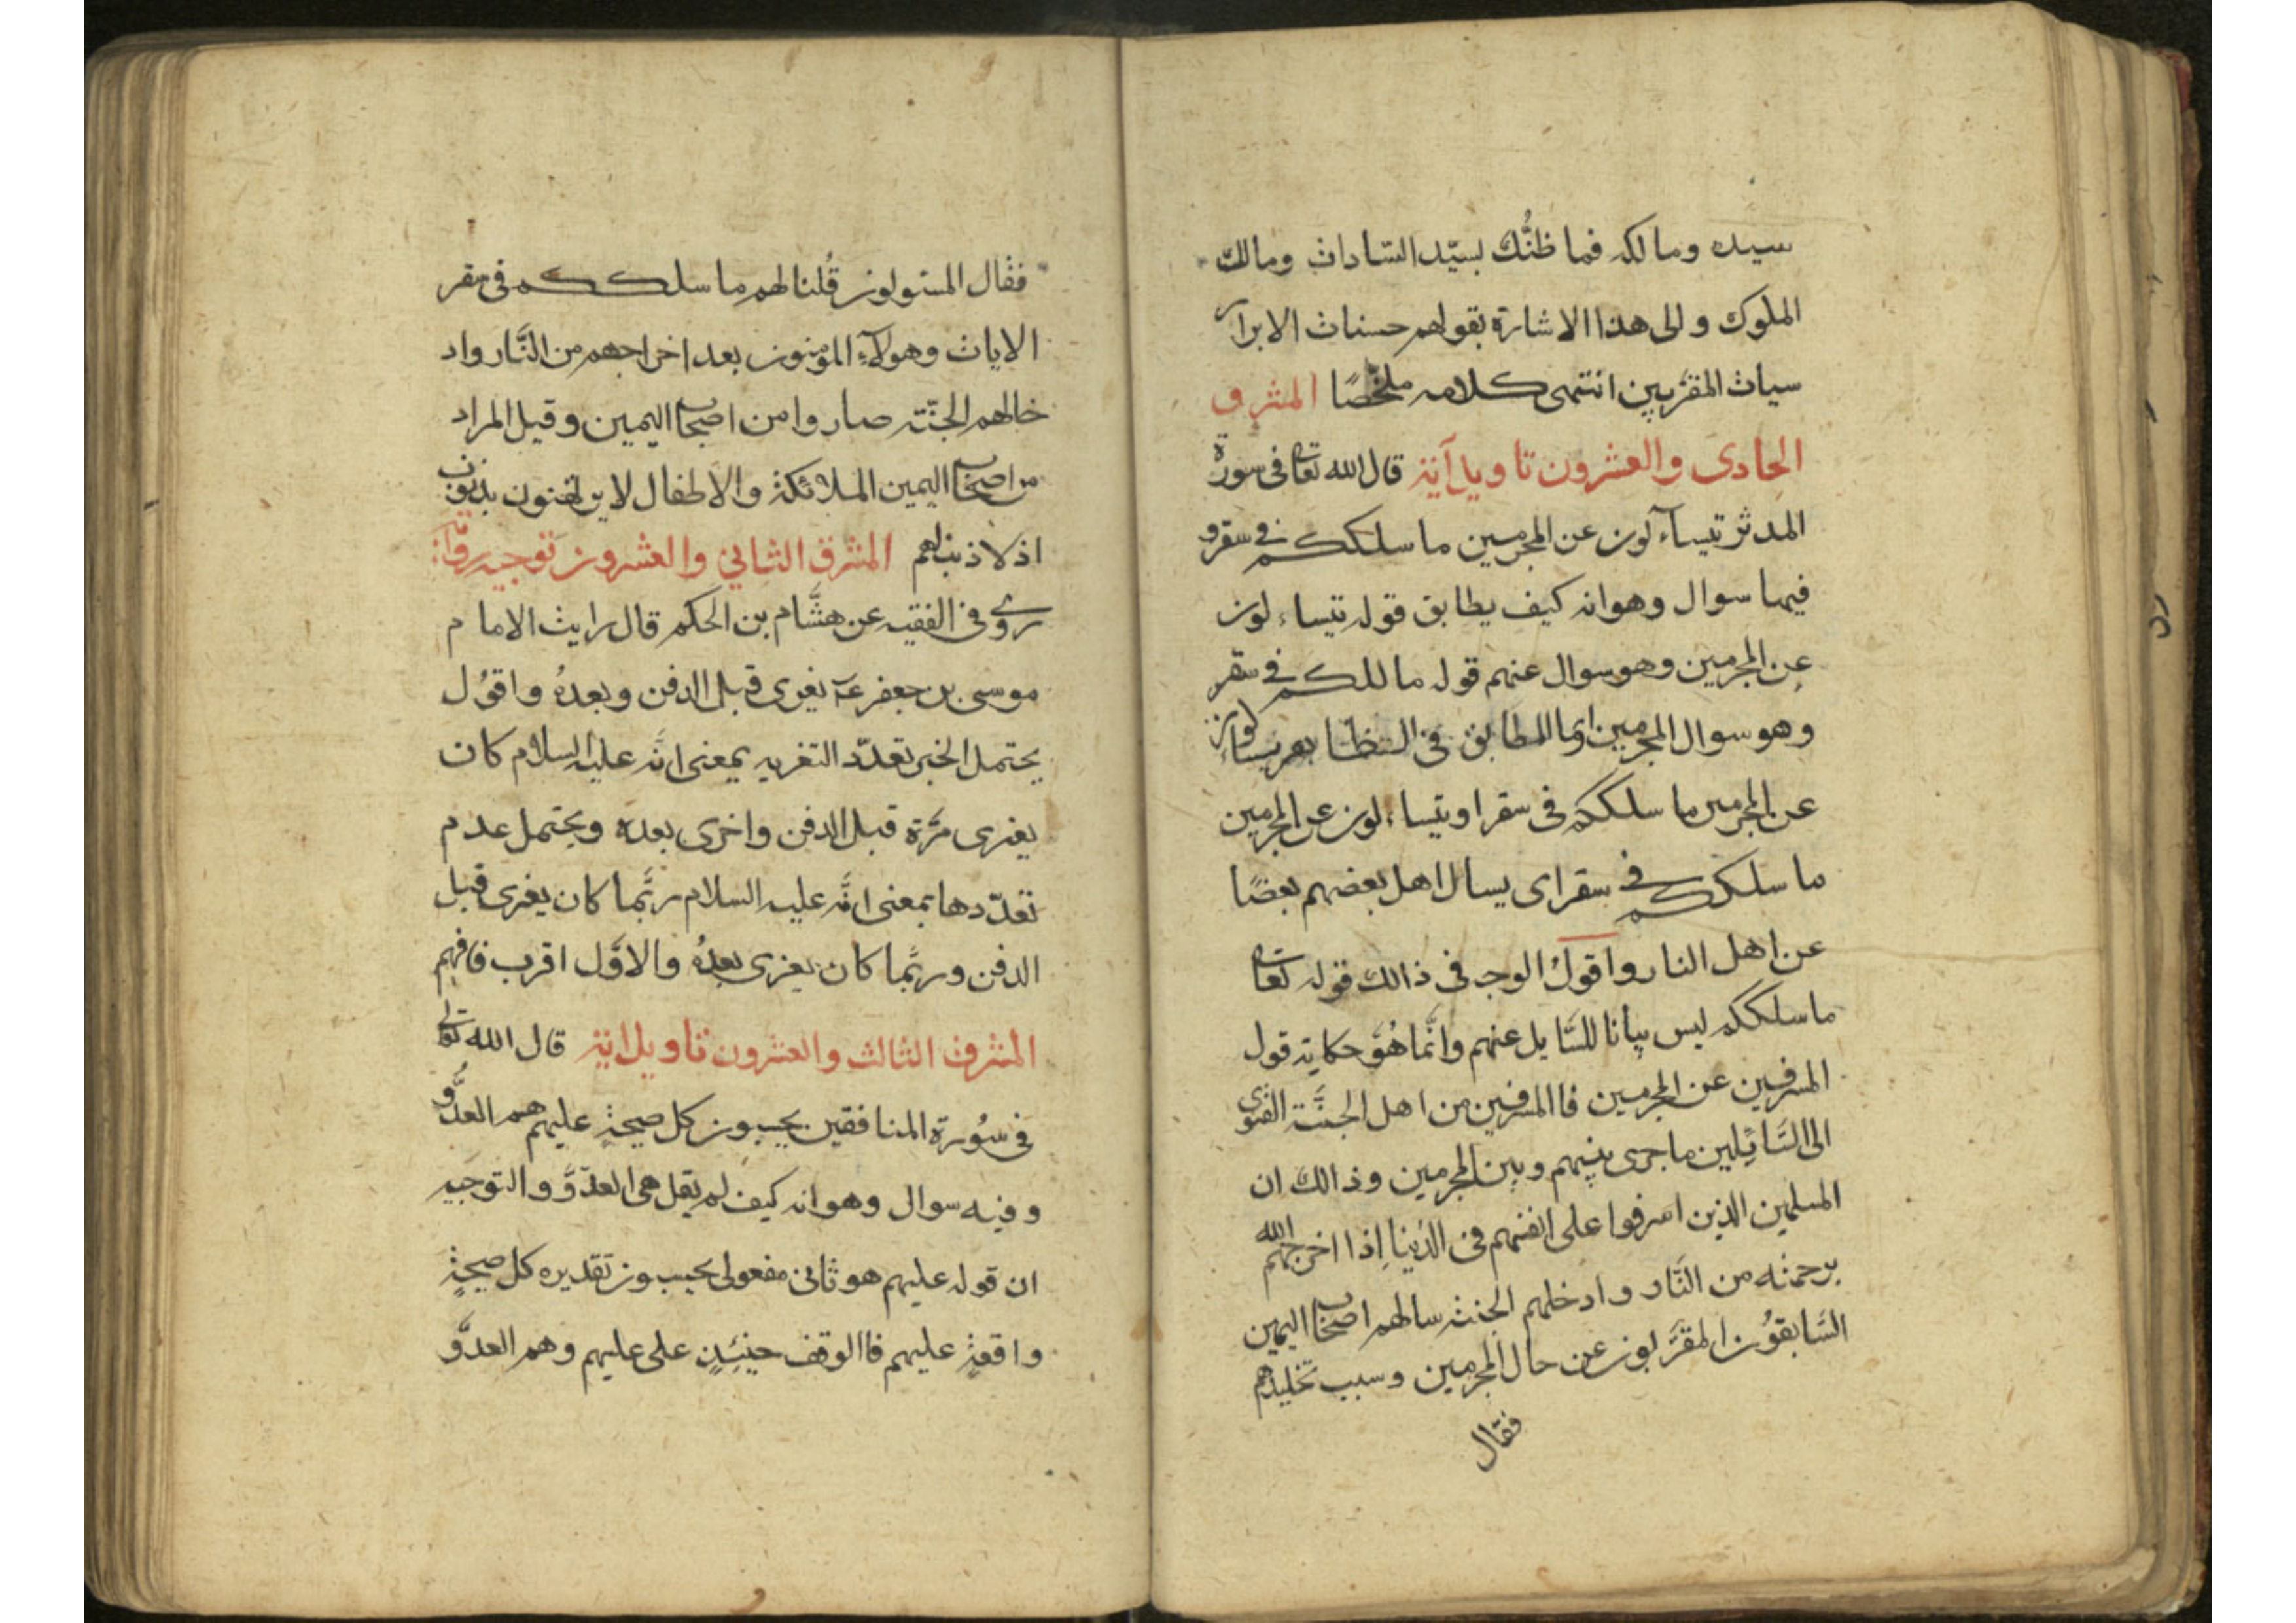 سيده ومالكه فما ظنُّك بسيّد السّادات ومالك
الملوك والى هذا الاشارة بقولهم حسنات الابرار
سيات المقرّبين انتهى كلامه ملخّصًا المشرق
الحادى والعشرون تاويل آية قال الله تعالى فى سورة
المدثر يتساءلون عن المجرمين ما سلككم فى سقر و
فيها سوال وهو انه كيف يطابق قوله يتساءلون
عن المجرمين وهو سوال عنهم قوله ما سلككم فى سقر
وهو سوال المجرمين انما المطابق فى يتساءلون
عن المجرمين ما سلككم فى سقر او يتساءلون عن المجرمين
ما سلككم فى سقر اى يسال اهل بعضهم بعضًا
عن اهل النار واقول الوجه فى ذالك قوله تعالى
ما سلككم ليس بيانا للسّايل عنهم وانّما هُوَ حكاية قول
المسرفين عن المجرمين فاالمسرفين من اهل الجنَّة القوى
الى السَّائلين ما جرى بينهم وبين المجرمين وذالك ان
المسلمين الذين اسرفوا على انفسهم فى الدُنيا اِذا اخرجهم الله
برحمته من النَّار وادخلهم الجنة سالهم اصحاب اليمين
السَّابقُون المقرَّبون عن حال المجرمين وسبب تخليدهم
فقال
فقال المسئولون قُلنا لهم ما سلككم فى سقر
الايات وهولآء المؤمنون بعد اخراجهم من النَّار واد
خالهم الجنّة صاروا من اصحاب اليمين وقيل المراد
من اصحاب اليمين الملائكة والاطفال لا يرتهنون بذنوب
اذ لا ذنب لهم المشرق الثانى والعشرون توجيه رواية
روى فى الفقيه عن هشَّام بن الحكم قال رايت الامام
موسى بن جعفر ع يعزى قبل الدفن وبعدهُ واقوُل
يحتمل الخبر تعدّد التعزيه بمعنى انَّه عليه السلام كان
يعزى مرَّة قبل الدفن واخرى بعده ويحتمل عدم
تعدّدها بمعنى انَّه عليه السلام ربَّما كان يعزى قبل
الدفن وربَّما كان يعزى بعدهُ والاوَّل اقرب فافهم
المشرق الثالث والعشرون تاويل اية قال الله تعالى
فى سُورة المنافقين يحسبون كل صيحةٍ عليهم هم العدُّو
وفيه سوال وهو انه كيف لم يقل هى العدّوَّ والتوجيه
ان قوله عليهم هو ثانى مفعولى يحسبون تقديره كل صيحةٍ
واقعةٍ عليهم فاالوقف حينئِذٍ على عليهم وهم العدوَّ